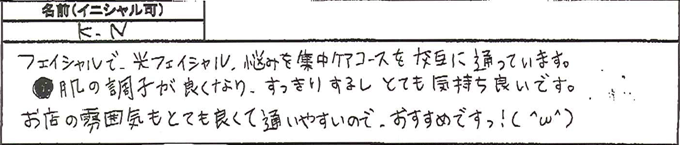 名前(イニシャル可)
K.N
フェイシャルで、光フェイシャル、悩みを集中ケアコースを交互に通っています。
肌の調子が良くなり、すっきりするしとても気持ち良いです。
お店の雰囲気もとても良くて通いやすいので、おすすめですっ!(^ω^)